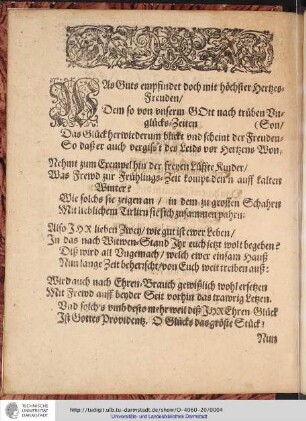 WAs Guts empfindet doch mit höchster Hertzes-
Freuden/
Dem so von unserm GOtt nach trüben Un-
glücks-Zeiten (Son/
Das Glück herwiederum blickt und scheint der Freuden-
So daß er auch vergis't des Leids vor Hertzens Won.
Nehmt zum Exempel hin der freyen Lüffte Kinder/
Was Frewd zur Frühlings-Zeit kompt den'n auff kalten
Winter?
Wie solchs sie zeigen an / in dem zu grossen Schahrn
Mit lieblichem Tirlirn sie sich zusammen pahrn:
Also JHR lieben Zwey/ wie gut ist ewer Leben/
In das nach Witwen-Stand Jhr euch jetzt wolt begeben?
Diß wird all Ungemach/ welch ewer einsam Hauß
Nun lange Zeit beherscht/ von Euch weit treiben auß:
Wird auch nach Ehren-Brauch gewißlich wohl ersetzen
Mit Frewd auff beyder Seit vorhin das trawrig Letzen.
Und solch's umb desto mehr weil diß JHR Ehren-Glück
Jst Gottes Providentz. O Glücks das größte Stück!
Nun
TECHNISCHE
UNIVERSITÄT
DARMSTADT
http://tudigit.ulb.tu-darmstadt.de/show/O-4060-20/0004
Universitäts- und Landesbibliothek Darmstadt